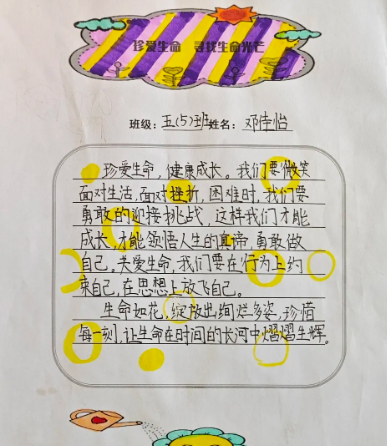 珍爱生命 寻找生命光芒
班级：五(5)班姓名：邓倖怡
珍爱生命，健康成长。我们要微笑
面对生活，面对挫折，困难时，我们要
勇敢的迎接挑战，这样我们才能
成长，才能领悟人生的真帝，勇敢做
自己，关爱生命，我们要在行为上约
束自己，在思想上放飞自己。
生命如花，绽放出绚烂多姿，珍惜
每一刻，让生命在时间的长河中熠熠生辉。